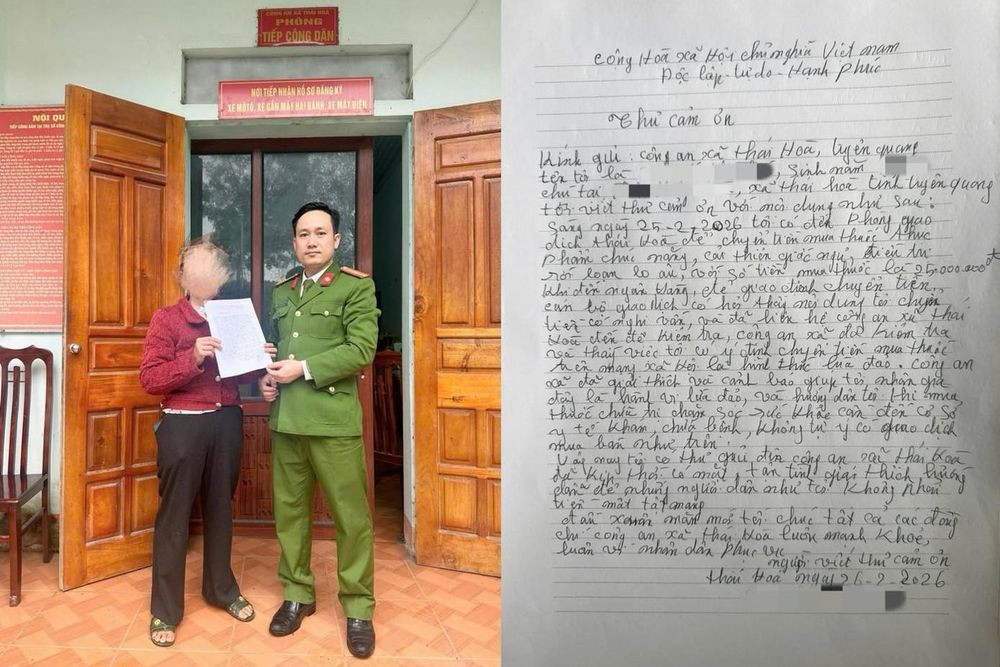 CÔNG AN XÃ THÁI HOÀ
PHÒNG
TIẾP CÔNG DÂN
NƠI TIẾP NHẬN HỒ SƠ ĐĂNG KÝ
XE MÔTÔ, XE GẮN MÁY HAI BÁNH, XE MÁY ĐIỆN
NỘI QU
TIẾP CÔNG DÂN TẠI TRỤ SỞ CÔNG
Cộng Hoà xã Hội chủ nghĩa Việt nam
Độc lập - tự do - Hạnh Phúc
Thư cảm ơn
Kính gửi: công an xã thái Hoà, tuyên quang
tên tôi là , Sinh năm
chú tại , xã thái hoà tỉnh tuyên quang
tôi viết thư cảm ơn với nội dung như sau:
Sáng ngày 25-2-2026 tôi có đến Phòng giao
dịch thái Hoà để chuyển tiền mua thuốc thực
Phẩm chức năng, cải thiện giấc ngủ, điều trị
rối loạn lo âu, với số tiền mua thuốc là 25.000.000đ
Khi đến ngân hàng, để giao dịch chuyển tiền,
cán bộ giao dịch có hỏi thấy nội dung tôi chuyển
tiền có nghi vấn, và đã liên hệ công an xã thái
Hoà đến để kiểm tra, công an xã đã kiểm tra
và thấy việc tôi có ý định chuyển tiền mua thuốc
trên mạng xã hội là hình thức lừa đảo. công an
xã đã giải thích và cảnh báo giúp tôi nhận
đây là hành vi lừa đảo, và hướng dẫn tôi khi mua
thuốc chữa chăm sóc sức khoẻ cần đến cơ sở
y tế khám, chữa bệnh, không tự ý có giao dịch
mua bán như trên.
Vậy nay tôi có thư gửi đến công an xã thái Hoà
đã kịp thời có mặt, tận tình giải thích hướng
dẫn để những người dân như tôi không phải
tiền mất tật mang
xuân mới tôi chúc tất cả các đồng
chí công an xã thái Hoà luôn mạnh khoẻ,
luôn vì nhân dân phục vụ
người viết thư cảm ơn
thái Hoà ngày 26-2-2026